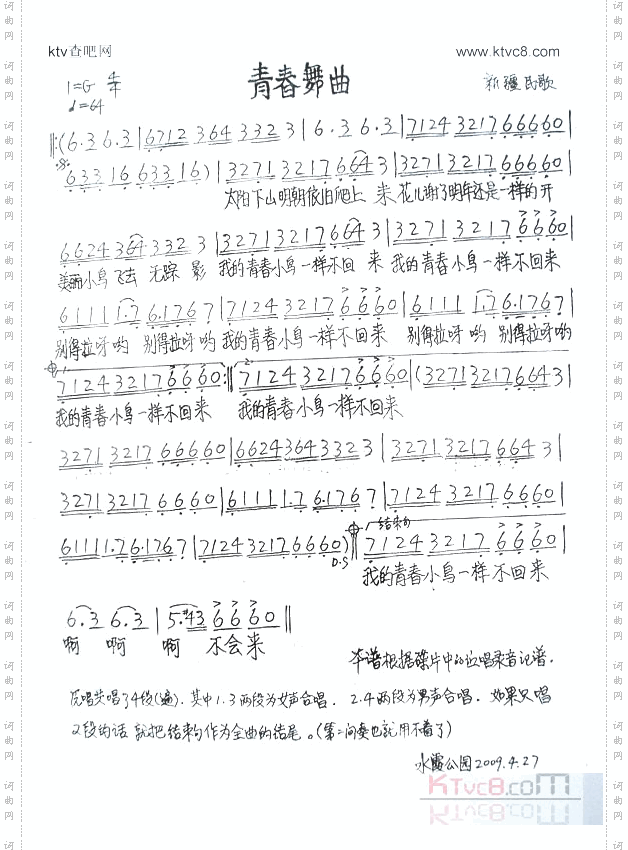 ktv查吧网 www.ktvc8.com
青春舞曲
1=G 4/4
♩=64
新疆民歌
‖:(6·3 6·3|6712 364 332 3|6·3 6·3|7124 3217 66660|
:S: 633 16 633 16)|3271 3217 664 3|3271 3217 66660|
太阳下山明朝依旧爬上 来 花儿谢了明年还是一样的开
6624 364 332 3|3271 3217 664 3|3271 3217 6660|
美丽小鸟飞去 无踪 影 我的青春小鸟一样不回 来 我的青春小鸟一样不回来
61111·7 6·1767|7124 3217 6660|6111 1·7 6·1767|
别得拉呀哟 别得拉呀哟 我的青春小鸟一样不回来 别得拉呀 哟 别得拉呀哟
1. 7124 3217 6660:‖2. 7124 3217 6660|(3271 3217 664 3|
我的青春小鸟一样不回来 我的青春小鸟一样不回来
3271 3217 66660|6624 364 332 3|3271 3217 664 3|
3271 3217 66660|61111·7 6·176 7|7124 3217 66660|
61111·7 6·1767|7124 3217 66660)‖ 结束句 7124 3217 6660|
D.S
我的青春小鸟一样不回来
6·3 6·3|5·#43 6660‖
啊 啊 啊 不会来
本谱根据碟片中的 唱录音记谱.
唱共唱了4段(遍).其中1.3两段为女声合唱. 2.4两段为男声合唱. 如果只唱
2段的话 就把结束句作为全曲的结尾。(第二间奏也就用不着了)
水霞公园2009.4.27
KTvc8.com
词曲网